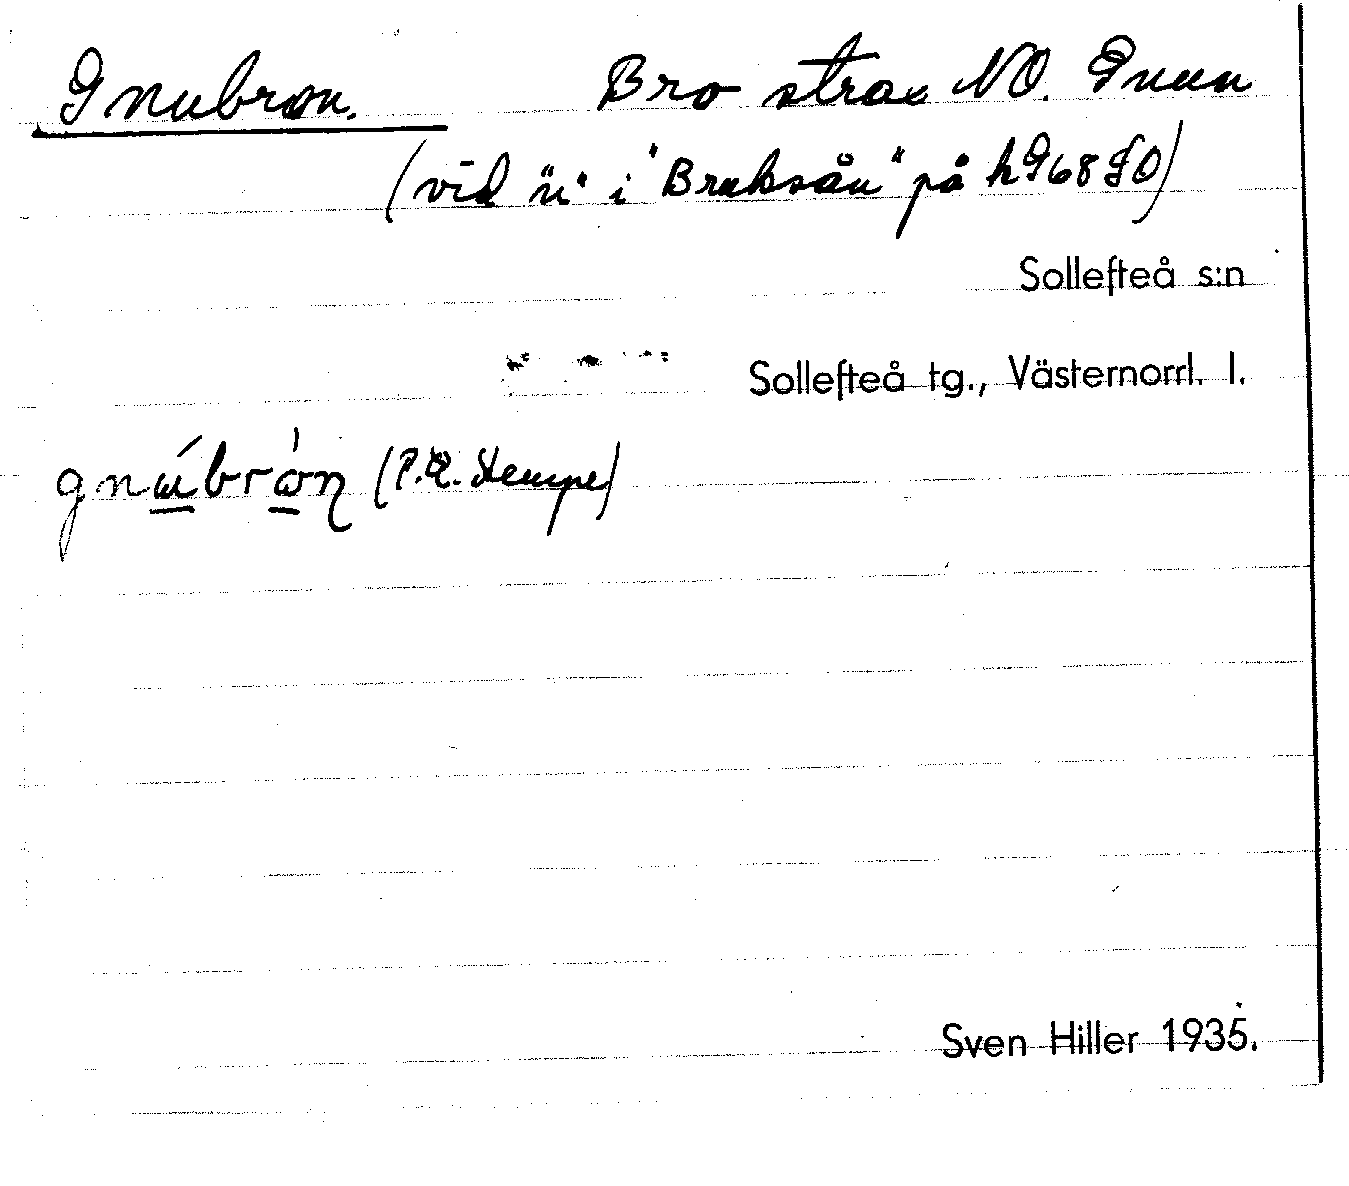 Gnubron. Bro strax NO. Gnuan
(vid "n" i "Bruksån" på k968SO)
Sollefteå s:n
Sollefteå tg., Västernorrl. l.
(P.R. Hempe)
Sven Hiller 1935.